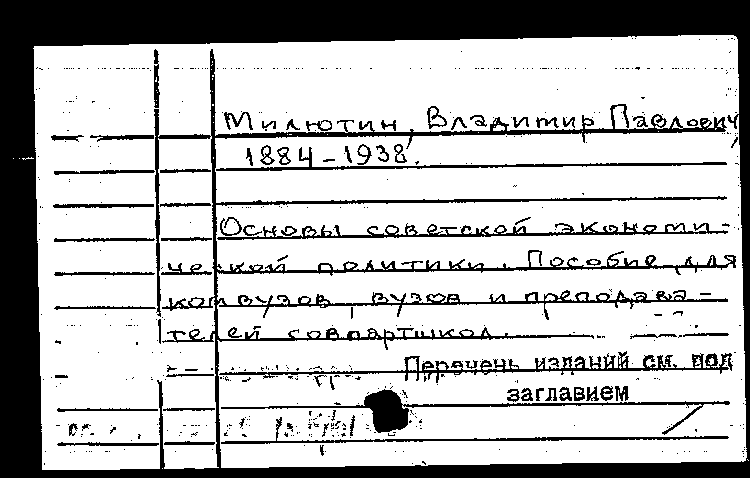 Милютин, Владимир Павлович,
1884-1938.
Основы советской экономи-
ческой политики. Пособие для
комвузов, вузов и преподава-
телей совпартшкол.
Перечень изданий см. под
заглавием